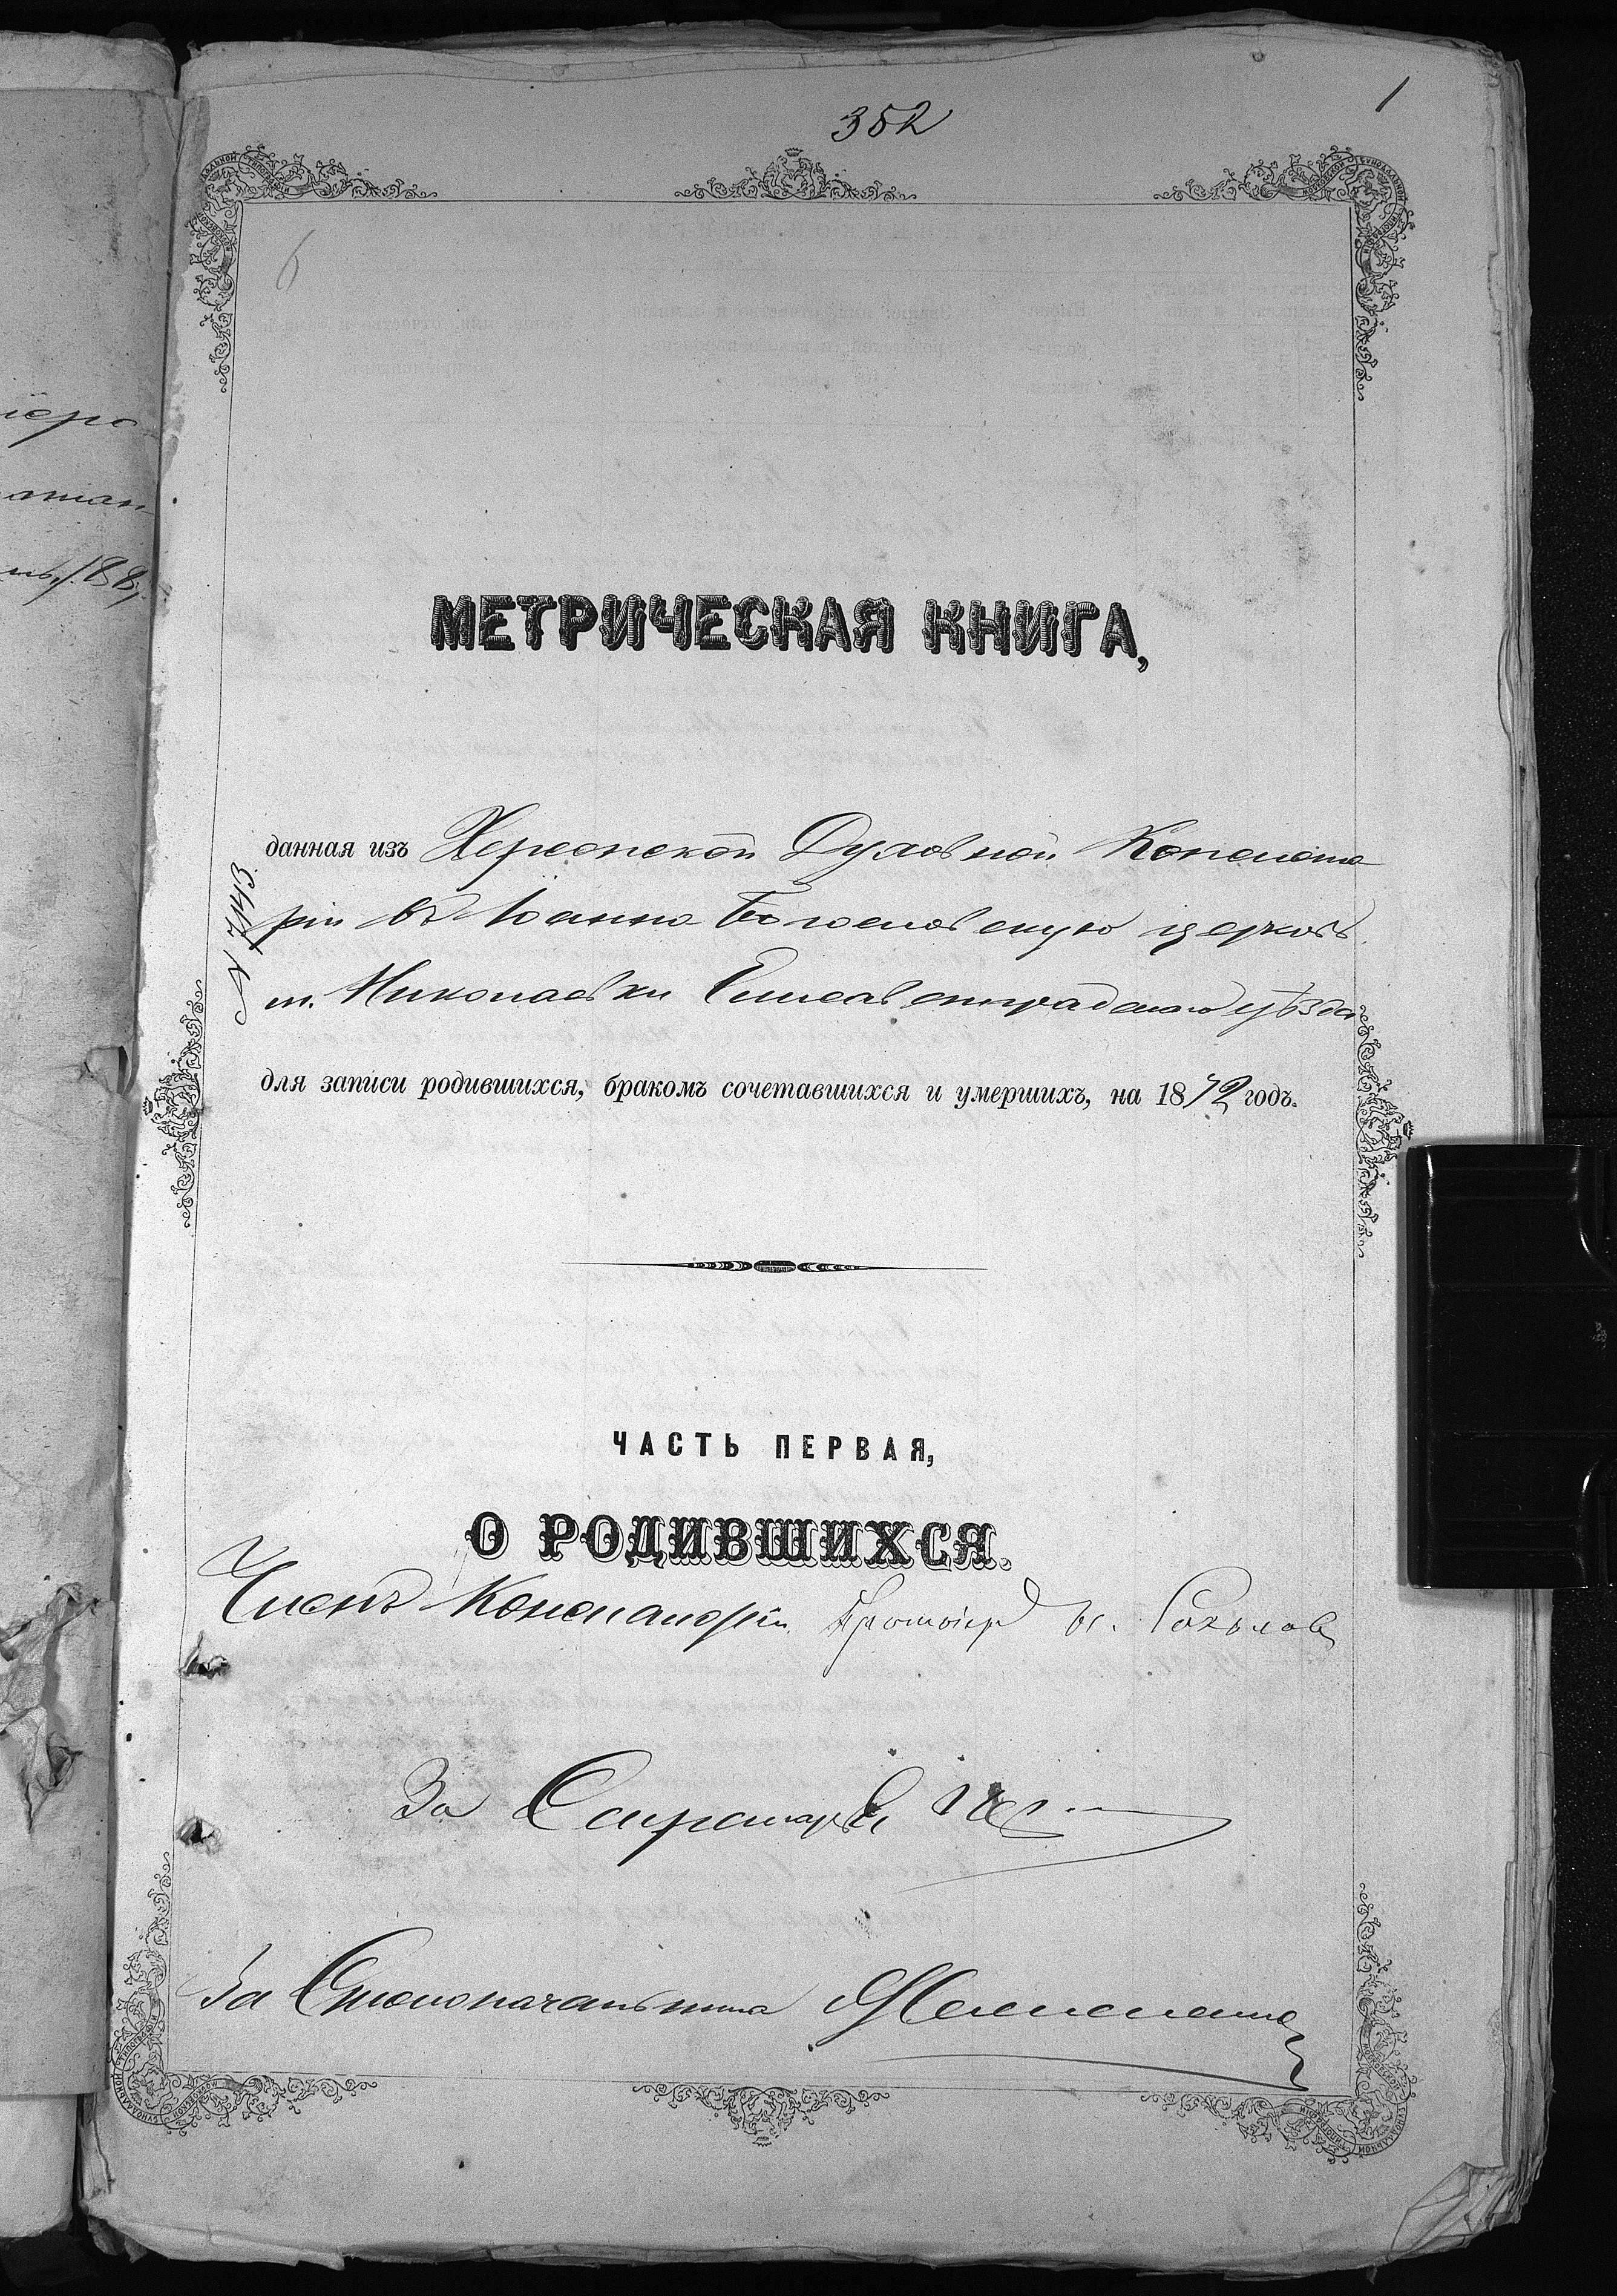 1
352
6
МЕТРИЧЕСКАЯ КНИГА,
данная изъ Херсонской Духовной Консисто
ріи въ Іоанно Богословскую церковь
м. Николаевки Елисаветградскаго уѣзда
для записи родившихся, бракомъ сочетавшихся и умершихъ, на 1872 годъ.
ЧАСТЬ ПЕРВАЯ,
О РОДИВШИХСЯ.
Членъ Консисторіи Протоіер Соколовъ
За Секретаря
За Столоначальника